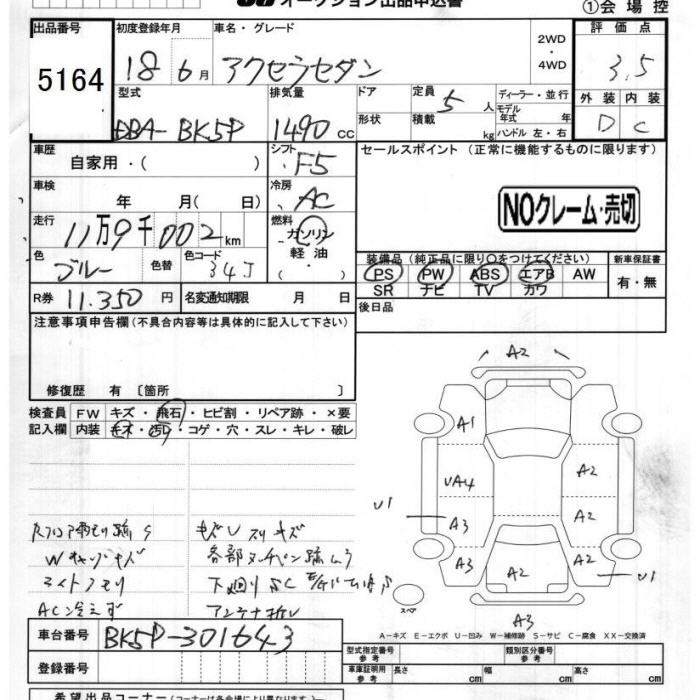 オークション出品申込書
①会場控
出品番号 初度登録年月 車名・グレード 2WD・4WD 評価点
5164 18 6月 アクセラセダン 3.5
型式 排気量 ドア 定員 5人 ディーラー・並行 外装 内装
DBA-BK5P 1490cc 形状 積載 kg モデル年式 年 ハンドル 左・右 D C
車歴 自家用・( ) シフト F5 セールスポイント (正常に機能するものに限ります)
車検 年 月( 日) 冷房 AC
NOクレーム・売切
走行 11万9千002km 燃料 ガソリン 軽油
色 ブルー 色替 色コード 34J ・( )
装備品 (純正品に限り○をつけてください) 新車保証書
PS PW ABS エアB AW 有・無
SR ナビ TV カワ
R券 11.350円 名変通知期限 月 日 後日品
注意事項申告欄(不具合内容等は具体的に記入して下さい)
修復歴 有 〔箇所 〕
検査員 FW キズ・飛石・ヒビ割・リペア跡・×要
記入欄 内装 キズ・汚レ・コゲ・穴・スレ・キレ・破レ
A2
A1
A2
UA4
U1
A3 A2
A3 A2 A2
U1
A3
スペア
キズU スリキズ
下廻りSC
AC冷えず
アンテナ折レ
A-キズ E-エクボ U-凹み W-補修跡 S-サビ C-腐食 XX-交換済
車台番号 BK5P-301643
型式指定番号 参考 類別区分番号 参考
登録番号 車庫証明用 参考 長さ cm 幅 cm 高さ cm
希望出品コーナー